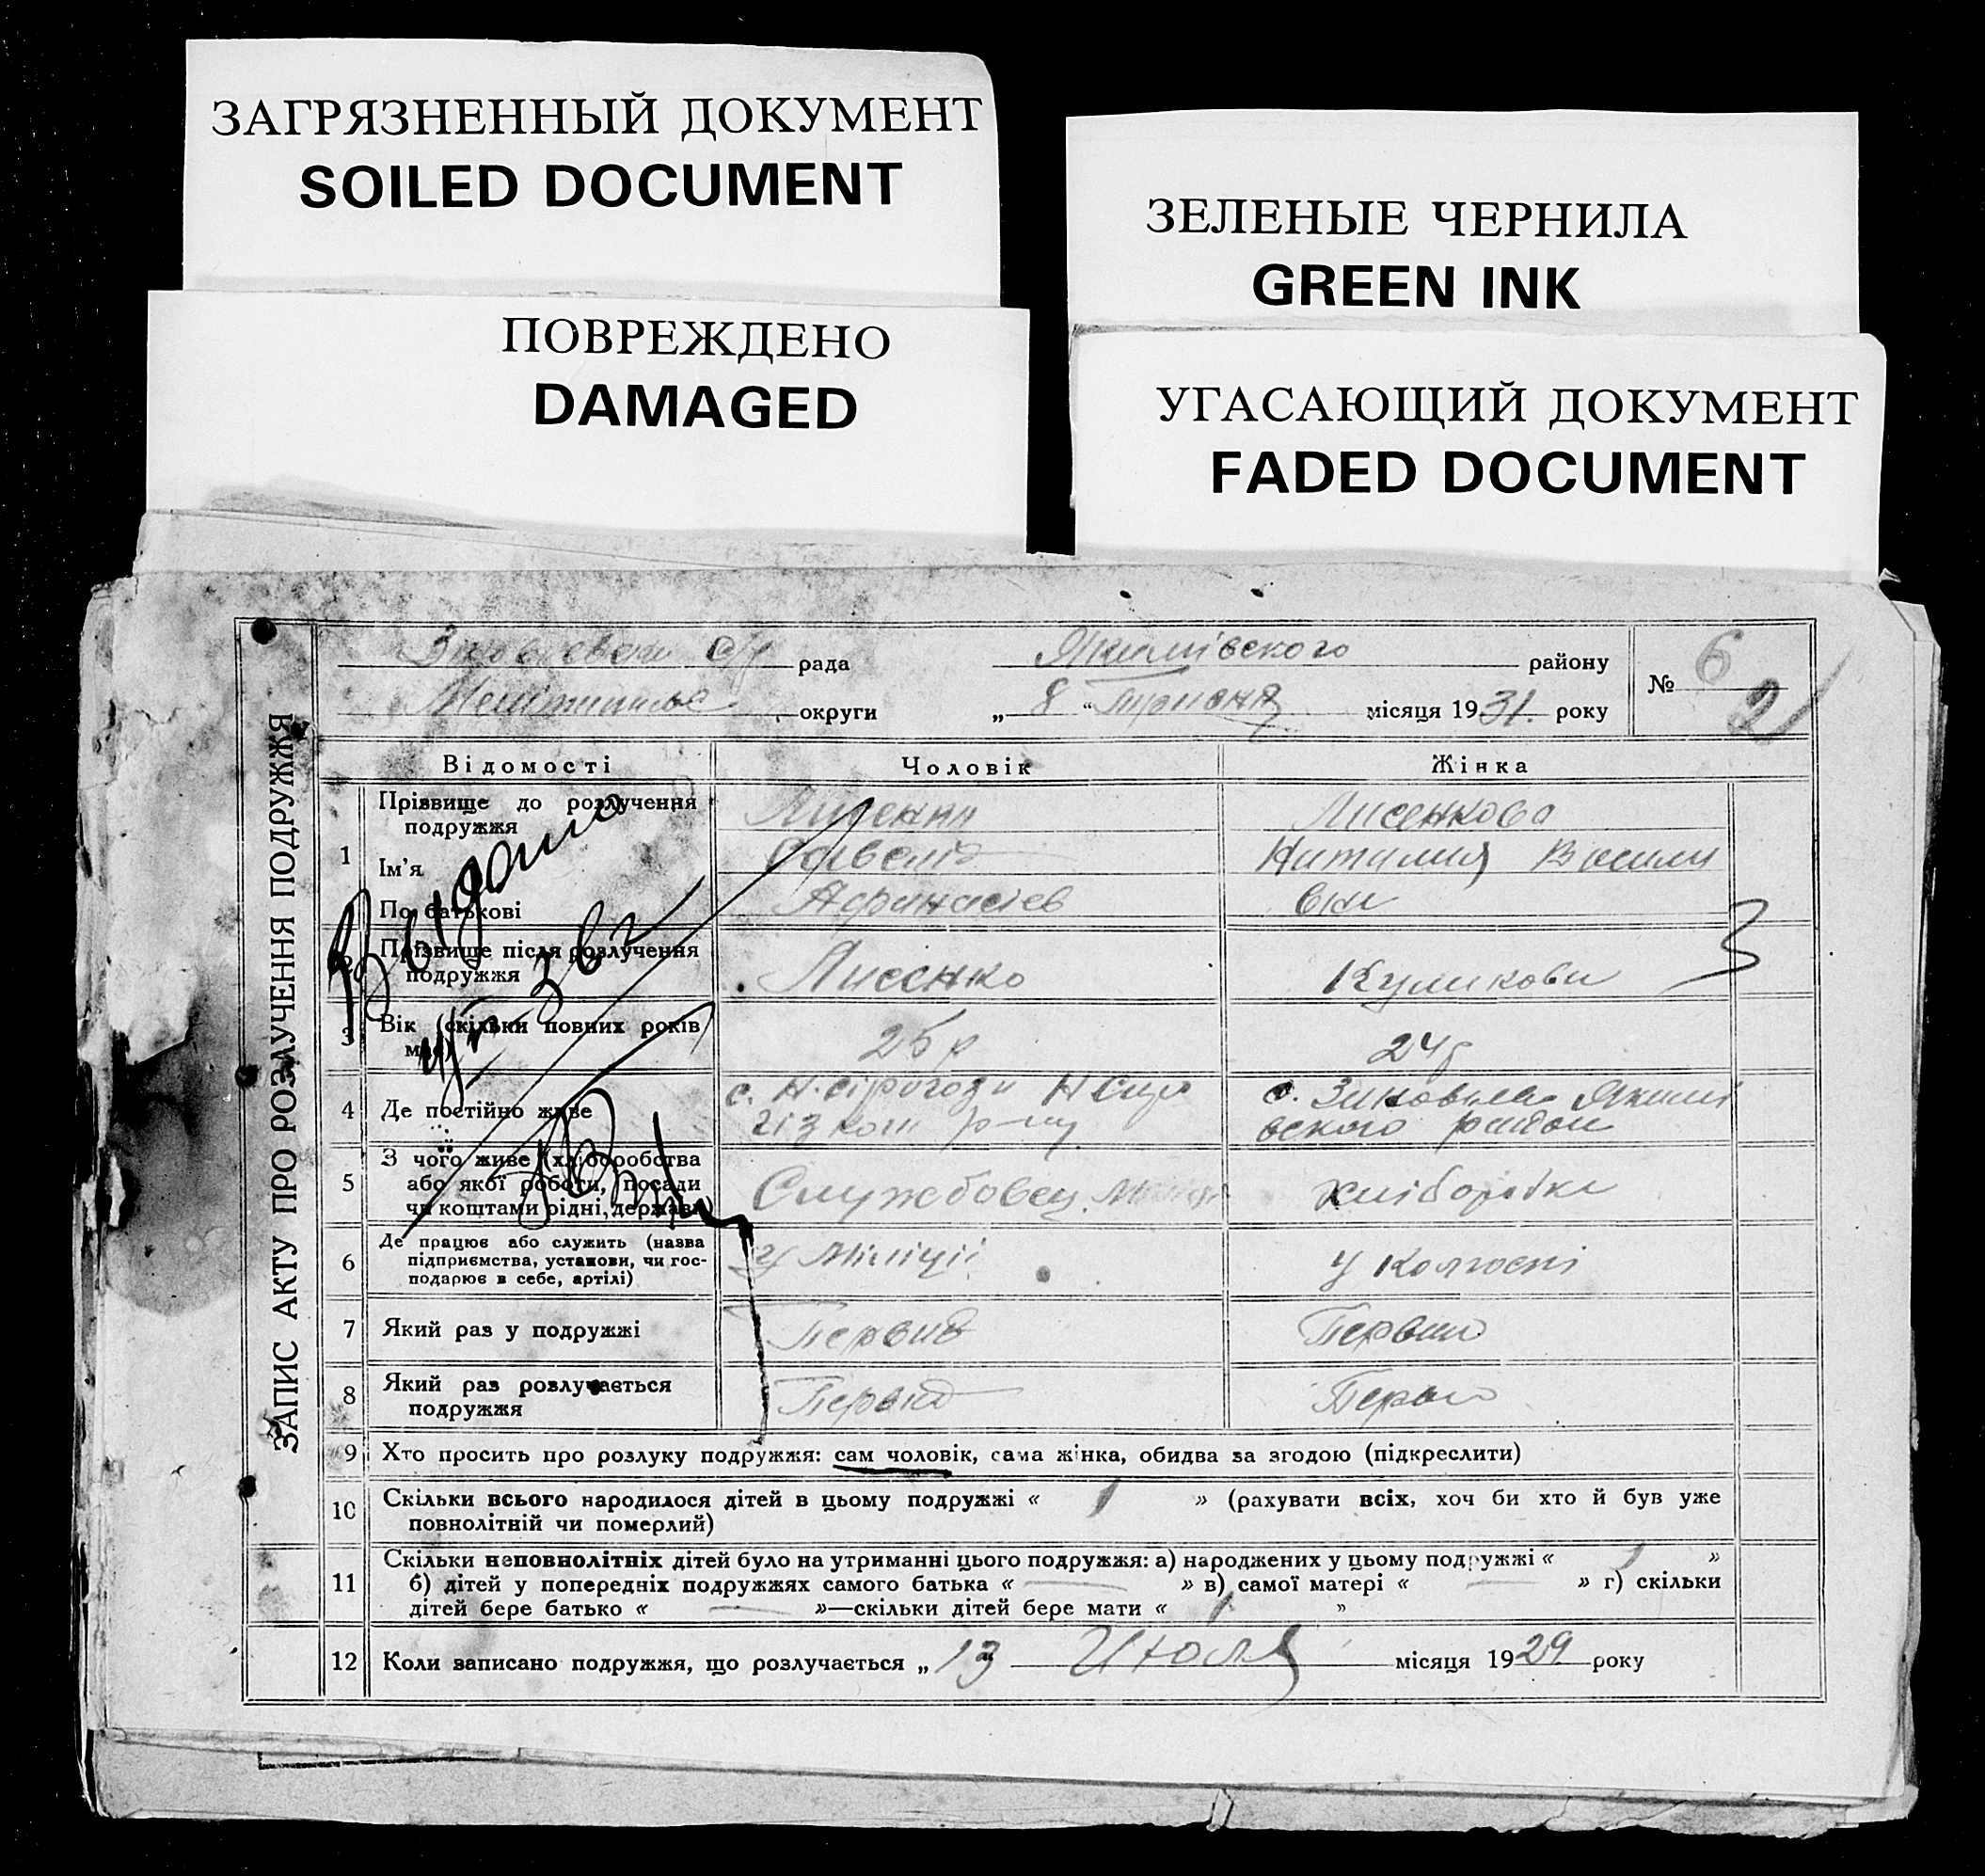 ЗАГРЯЗНЕННЫЙ ДОКУМЕНТ
SOILED DOCUMENT
ЗЕЛЕНЫЕ ЧЕРНИЛА
GREEN INK
ПОВРЕЖДЕНО
DAMAGED
УГАСАЮЩИЙ ДОКУМЕНТ
FADED DOCUMENT
ЗАПИС АКТУ ПРО РОЗЛУЧЕННЯ ПОДРУЖЖЯ
с/р рада Якимівского району № 6 2
округи „ 8 “ місяця 1931. року
Відомості Чоловік Жінка
1 Прізвище до розлучення подружжя Лисенко Лисенкова
Ім'я Савелій Наталия Васили
По батькові Афанасієв вна
2 Прізвище після розлучення подружжя Лисенко Куликова
3 Вік (скільки повних років має) 25 р 24 р
4 Де постійно живе с. Н. Сірогози Н Сиро
гізком р-ну
с. Зиновьева Якимі
вского район
5 З чого живе (хліборобства або якої роботи, посади чи коштами рідні, держави) Службовец хліборобка
6 Де працює або служить (назва підприємства, установи, чи господарює в себе, артілі) У Міліції У колгоспі
7 Який раз у подружжі Первий Перший
8 Який раз розлучається подружжя Первий
9 Хто просить про розлуку подружжя: сам чоловік, сама жінка, обидва за згодою (підкреслити)
10 Скільки всього народилося дітей в цьому подружжі « 1 » (рахувати всіх, хоч би хто й був уже
повнолітній чи померлий)
11 Скільки неповнолітніх дітей було на утриманні цього подружжя: а) народжених у цьому подружжі « 1 »
б) дітей у попередніх подружжях самого батька « — » в) самої матері « — » г) скільки
дітей бере батько « — »—скільки дітей бере мати « 1 »
12 Коли записано подружжя, що розлучається „ 13 Июля місяця 1929 року
Выдано